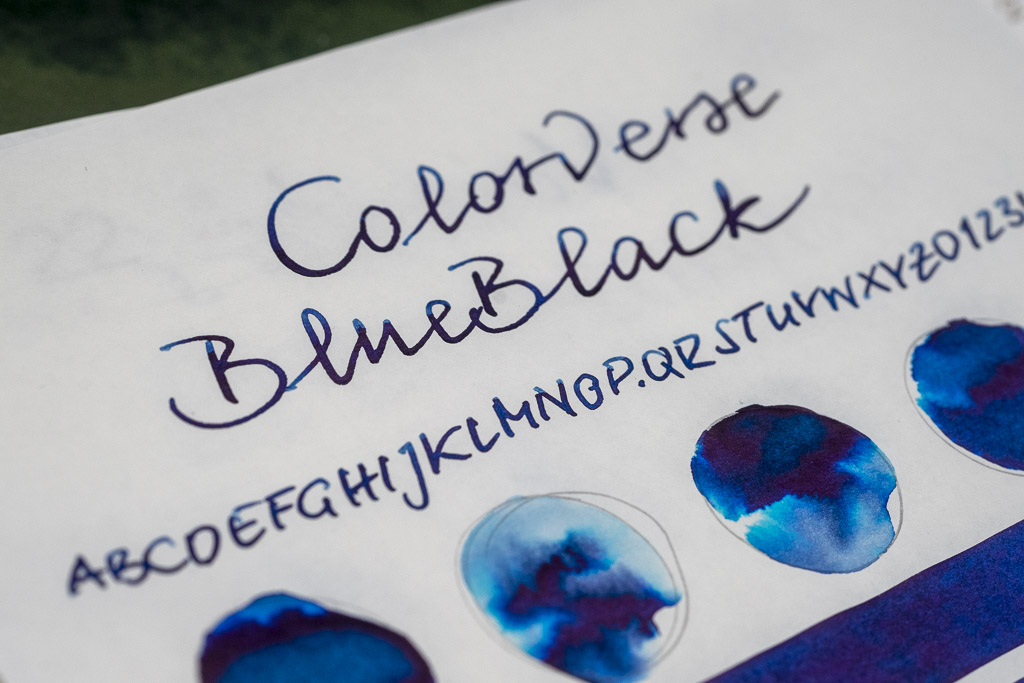 ColorVerse
BlueBlack
ABCDEFGHIJKLMNOP.QRSTUVWXYZ0123